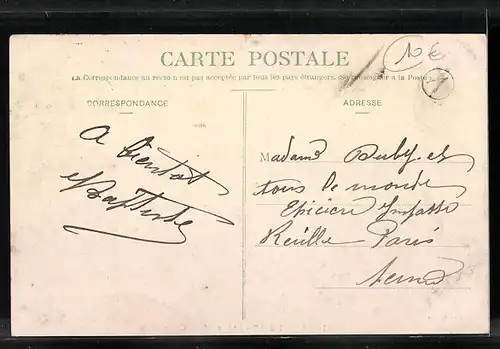 CARTE POSTALE
10 €
1
La Correspondance au recto n'est pas acceptée par tous les pays étrangers. (Se renseigner à la Poste)
CORRESPONDANCE
A bientot
Baptiste
ADRESSE
Madame Duby et
tous le monde
Epicière Impasse
Reuille Paris